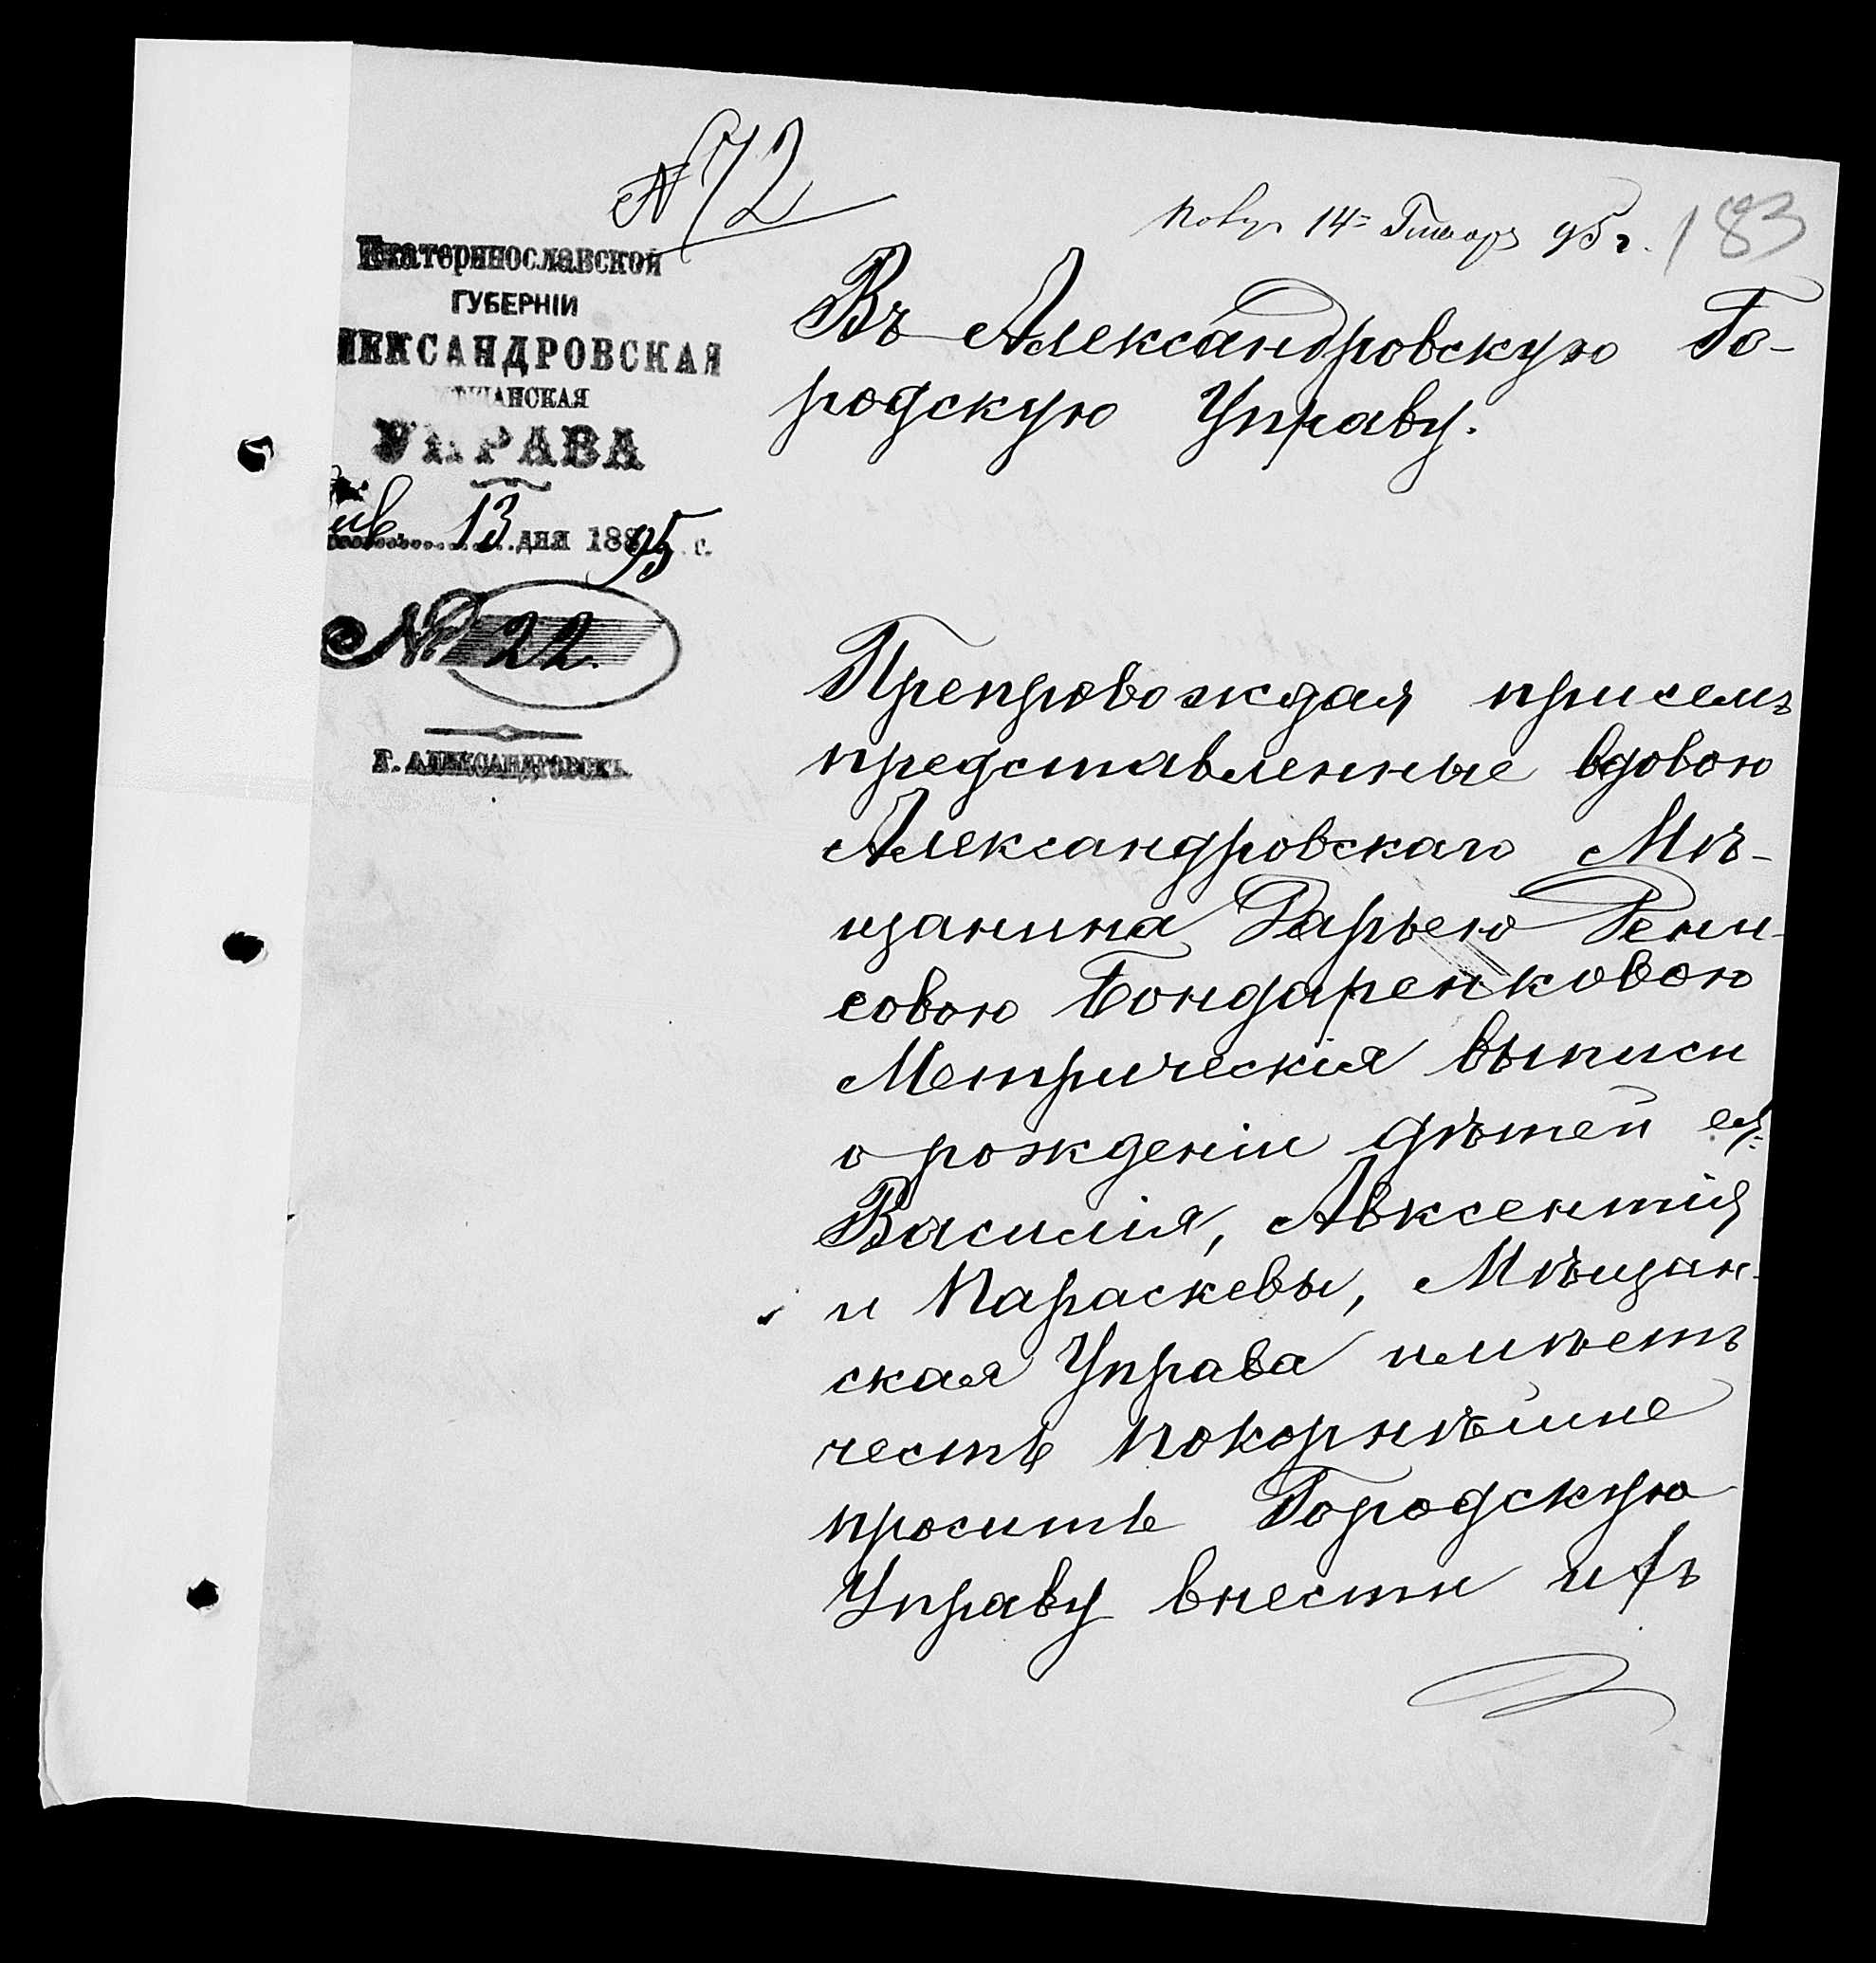 № 72
183
14 Января 95 г.
Екатеринославской
ГУБЕРНІИ
ЛЕКСАНДРОВСКАЯ
ЩАНСКАЯ
УПРАВА
Янв. 13 дня 1895 г.
№ 22.
Г. АЛЕКСАНДРОВСКЪ.
Въ Александровскую Го-
родскую Управу.
Препровождая присемъ
представленные вдовою
Александровскаго Мѣ-
щанина Дарьею Дени-
совою Бондаренковою
Метрическія выписи
о рожденіи дѣтей ея:
Василія, Авксентія
и Параскевы, Мѣщан-
ская Управа имѣетъ
честь покорнѣйше
просить Городскую
Управу внести ихъ